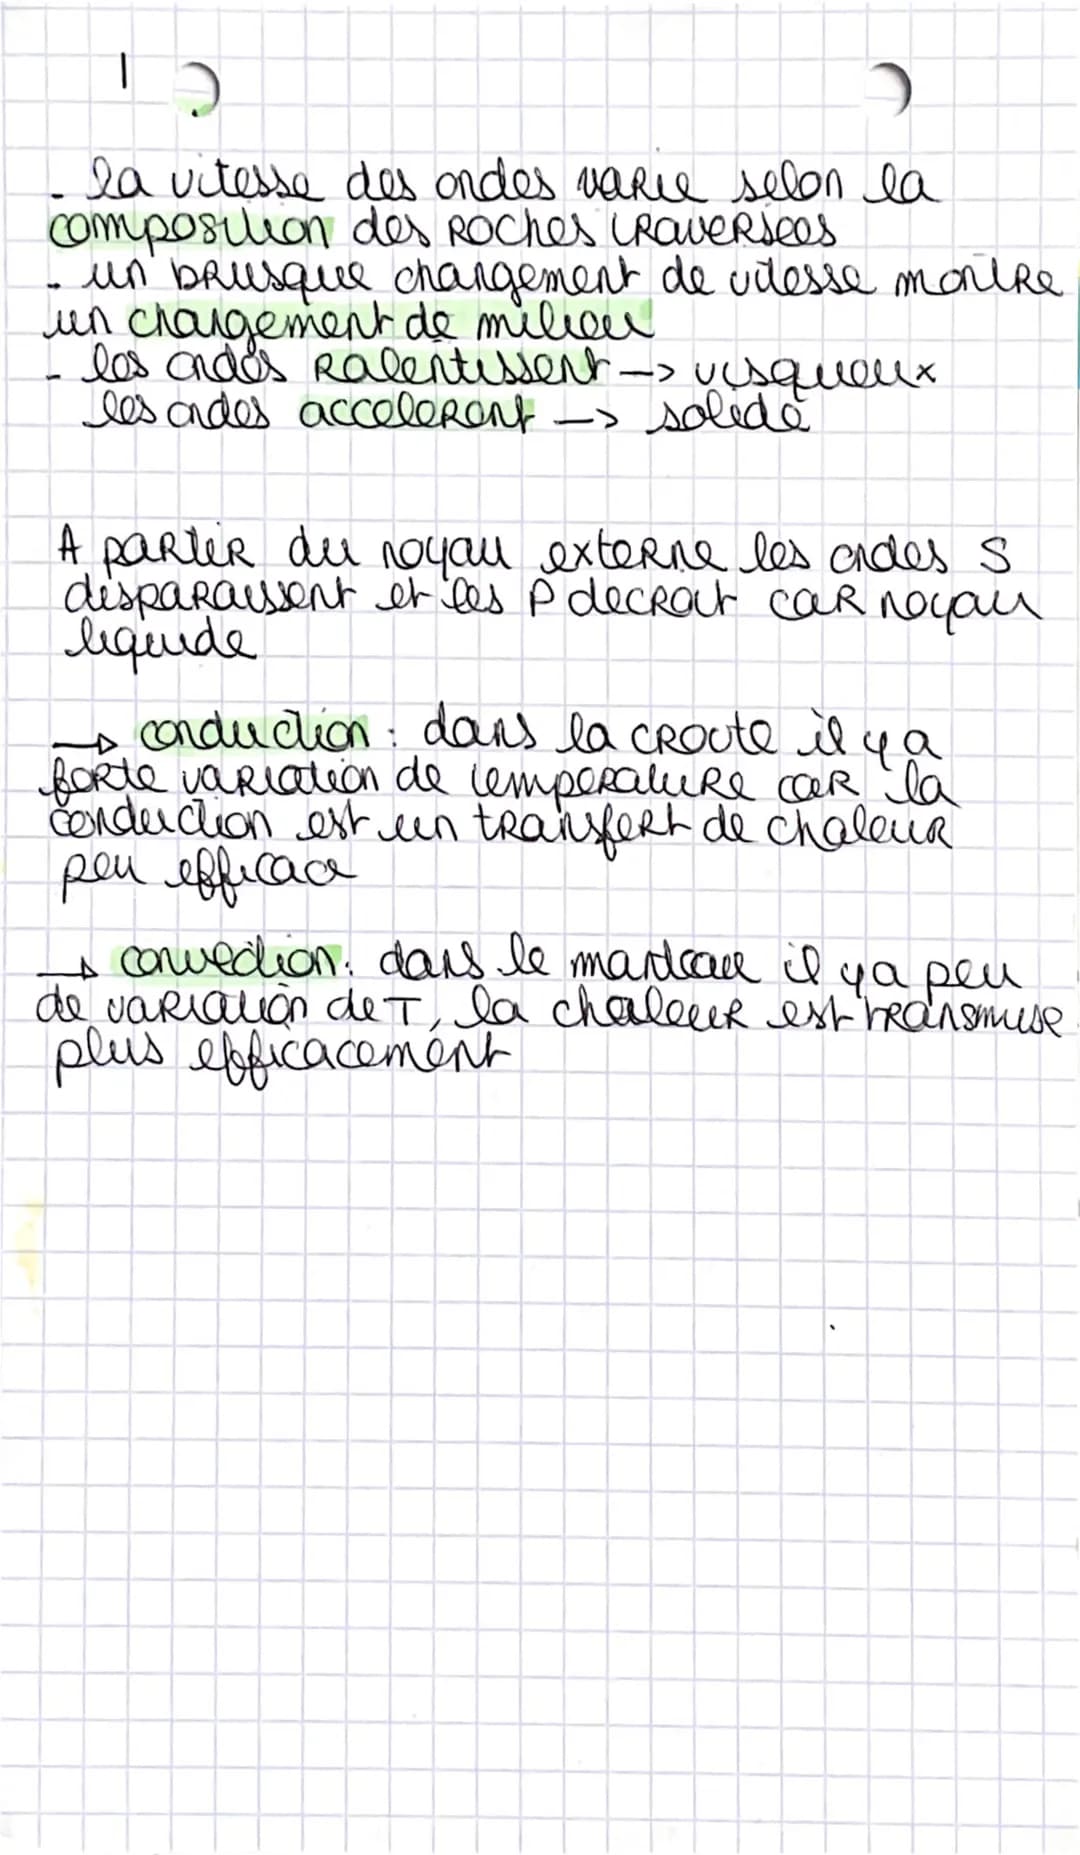 - la vitesse des ondes varie selon la
composition des roches traversees
- un brusque changement de vitesse montre
un changement de milieu
- les ondes ralentissent -> visqueux
les ondes accelerent -> solide
A partir du noyau externe les ondes S
disparaissent et les P decroit car noyau
liquide
→ conduction : dans la croute il y a
forte variation de temperature car la
conduction est un transfert de chaleur
peu efficace
→ convection : dans le manteau il y a peu
de variation de T, la chaleur est transmise
plus efficacement